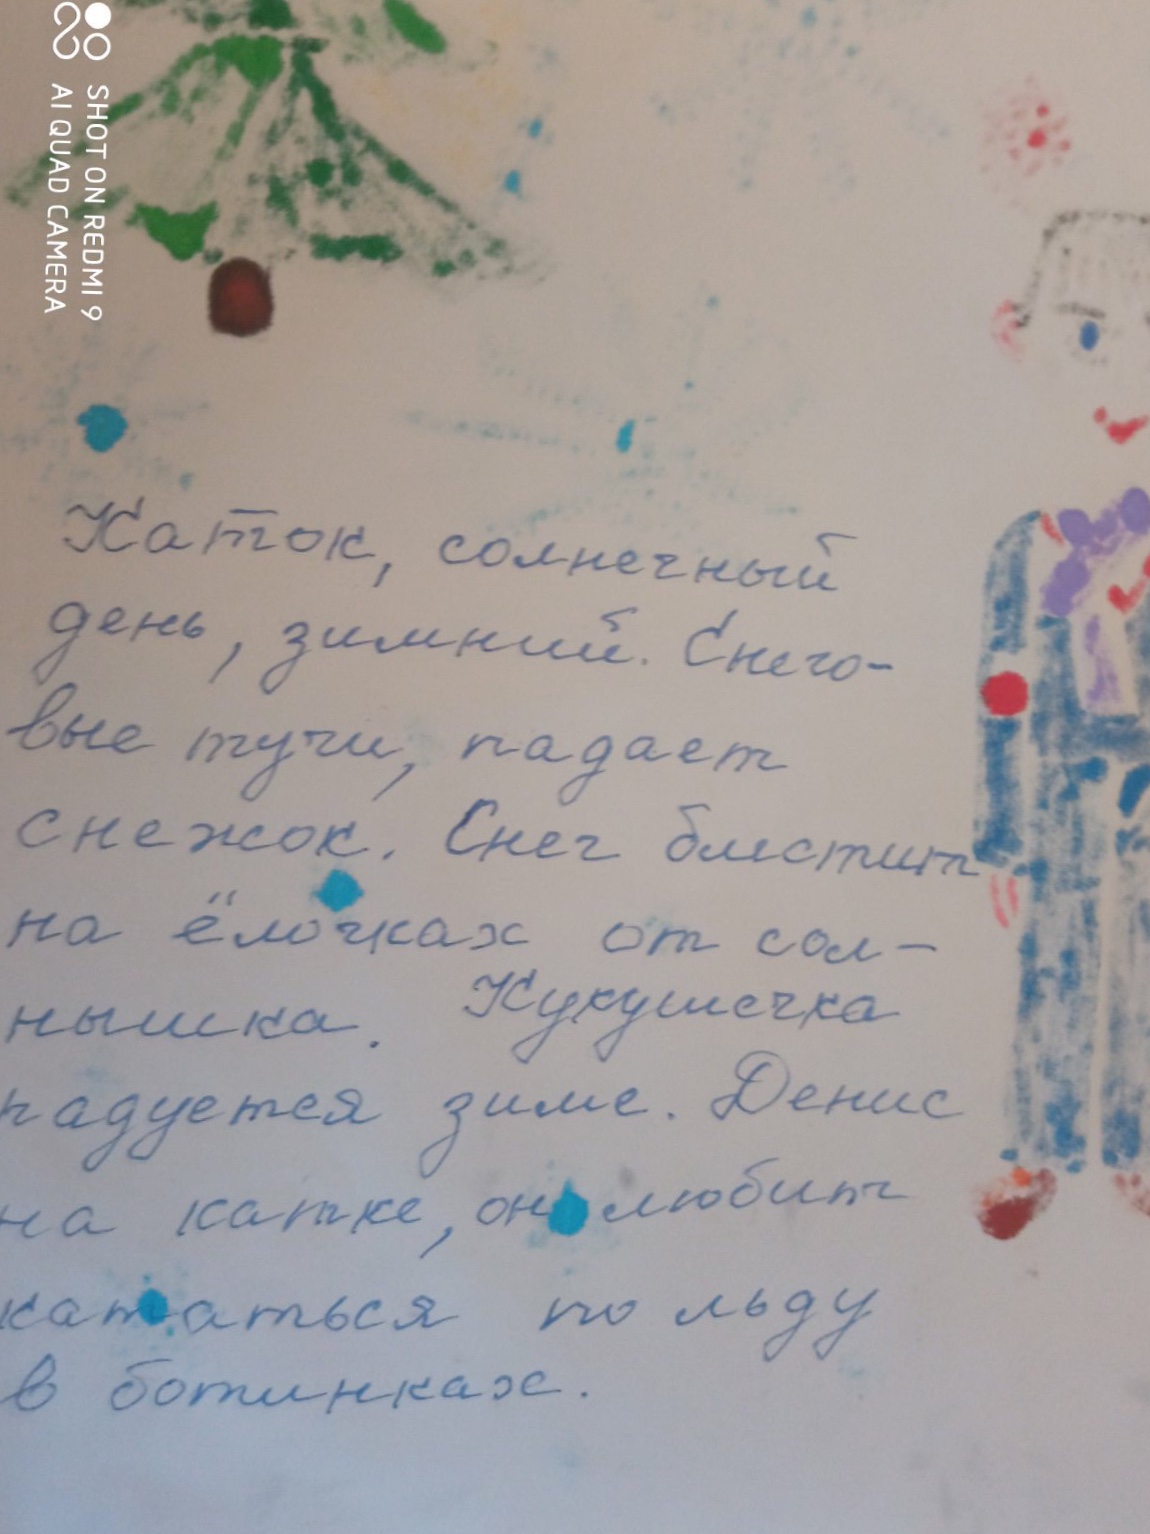 SHOT ON REDMI 9
AI QUAD CAMERA
Каток, солнечный
день, зимний. Снего-
вые тучи, падает
снежок. Снег блестит
на ёлочках от сол-
нышка. Кукушечка
радуется зиме. Денис
на катке, он любит
кататься по льду
в ботинках.